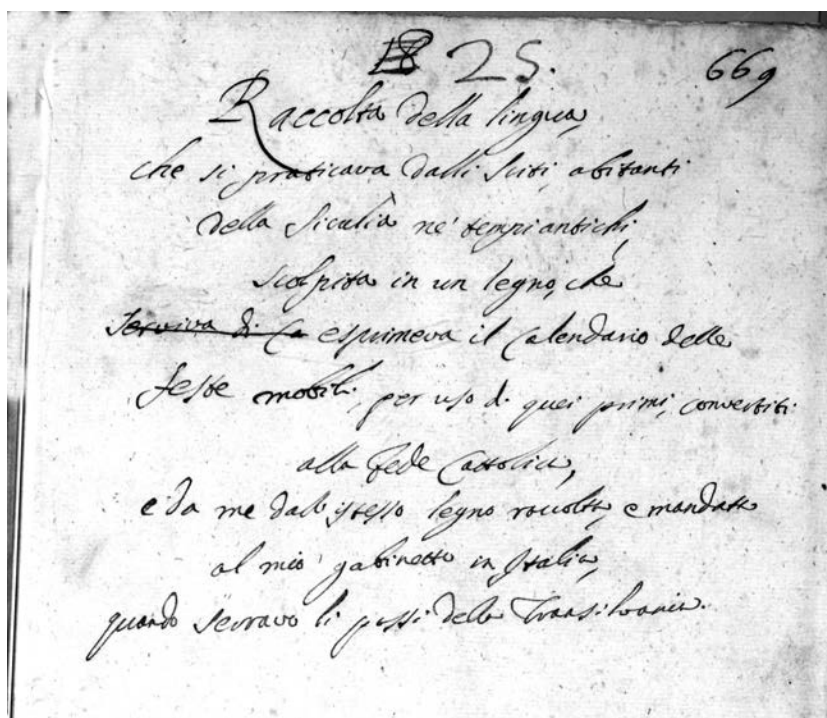 25. 669
Raccolta della lingua,
che si praticava dalli Sciti, abitanti
della Siculia ne' tempi antichi,
scolpita in un legno, che
serviva di Ca esprimeva il Calendario delle
feste mobili, per uso di quei primi, convertiti
alla fede Cattolica,
e da me dall'istesso legno raccolta, e mandata
al mio gabinetto in Italia,
quando serravo li passi della Transilvania.